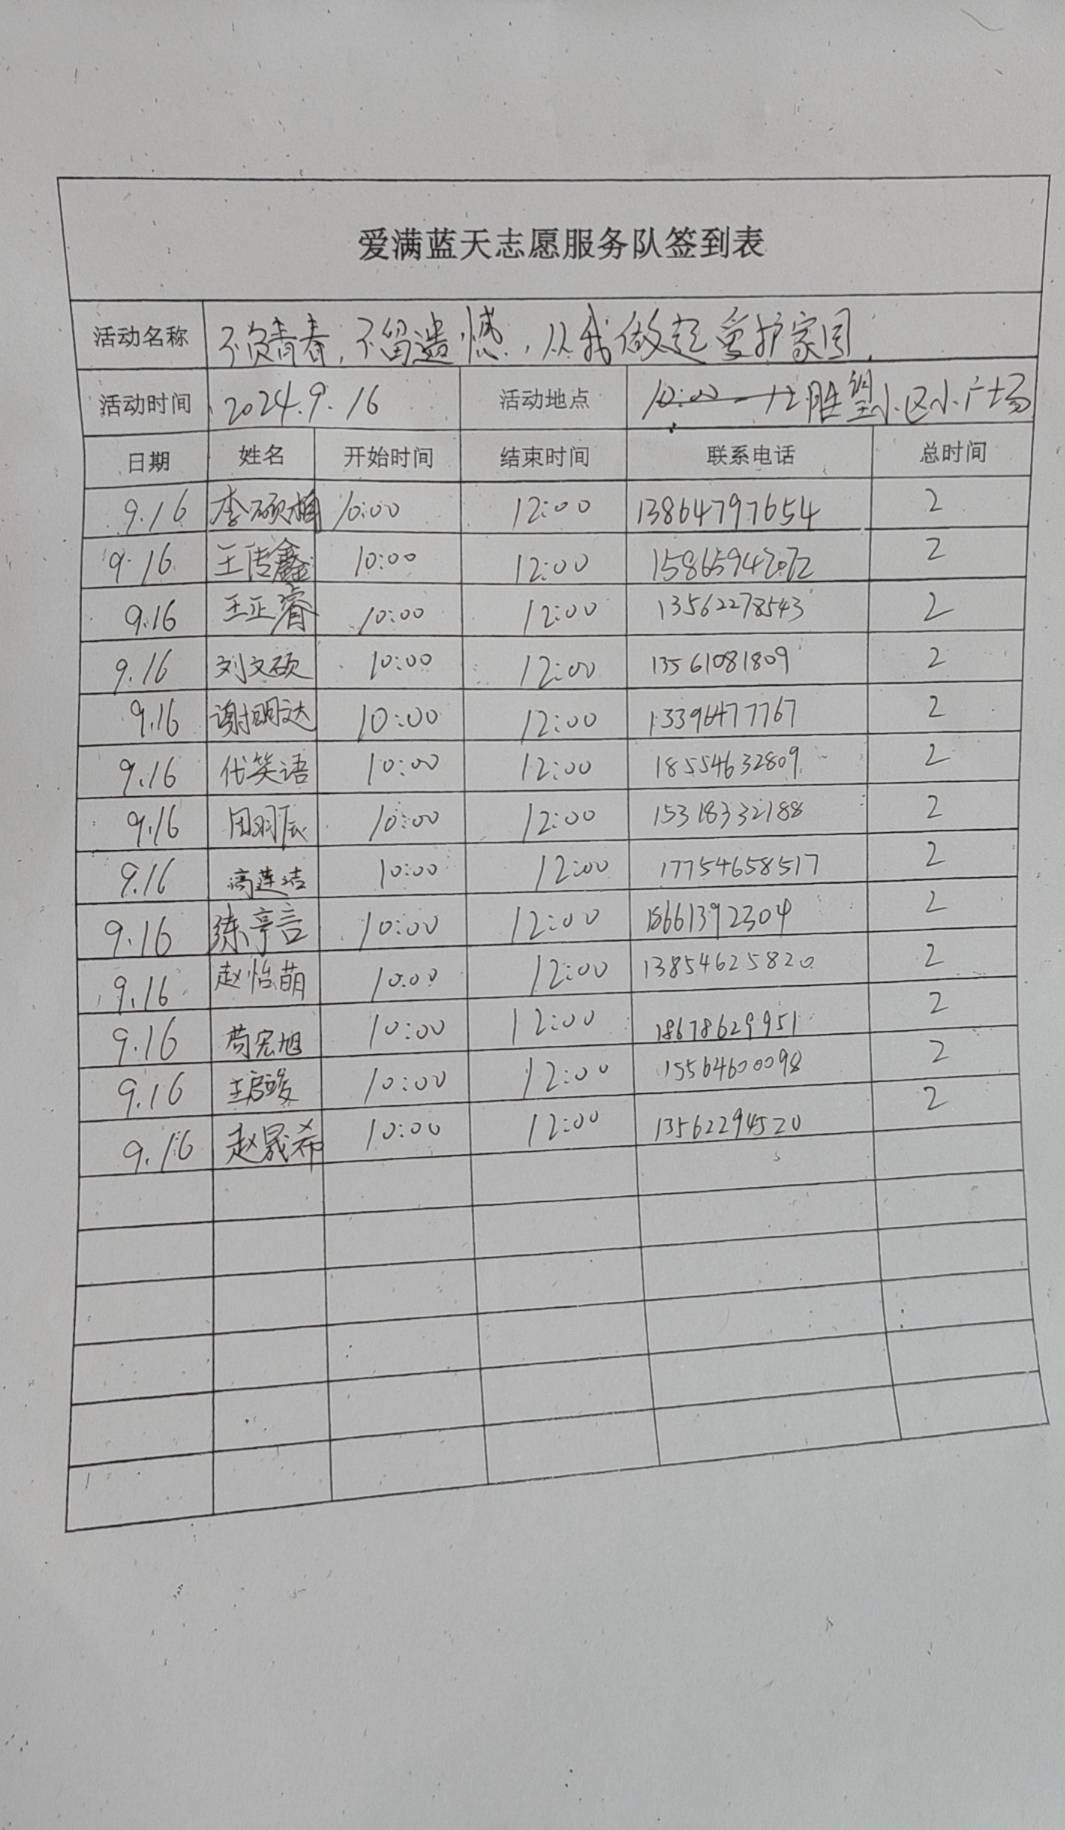 爱满蓝天志愿服务队签到表
活动名称 不负青春,不留遗憾,从我做起爱护家园.
活动时间 2024.9.16 活动地点 胜望小区小广场
日期 姓名 开始时间 结束时间 联系电话 总时间
9.16 李硕桐 10:00 12:00 13864797654 2
9.16 王传鑫 10:00 12:00 2
9.16 王正睿 10:00 12:00 13562278543 2
9.16 刘文硕 10:00 12:00 13561081809 2
9.16 谢明达 10:00 12:00 13396477767 2
9.16 代笑语 10:00 12:00 18554632809 2
9.16 田羽辰 10:00 12:00 15318332188 2
9.16 高莲洁 10:00 12:00 17754658517 2
9.16 练亭言 10:00 12:00 18661392304 2
9.16 赵怡萌 10:00 12:00 13854625820 2
9.16 苟宏旭 10:00 12:00 18678629951 2
9.16 10:00 12:00 15564600098 2
9.16 赵晟希 10:00 12:00 13562294520 2